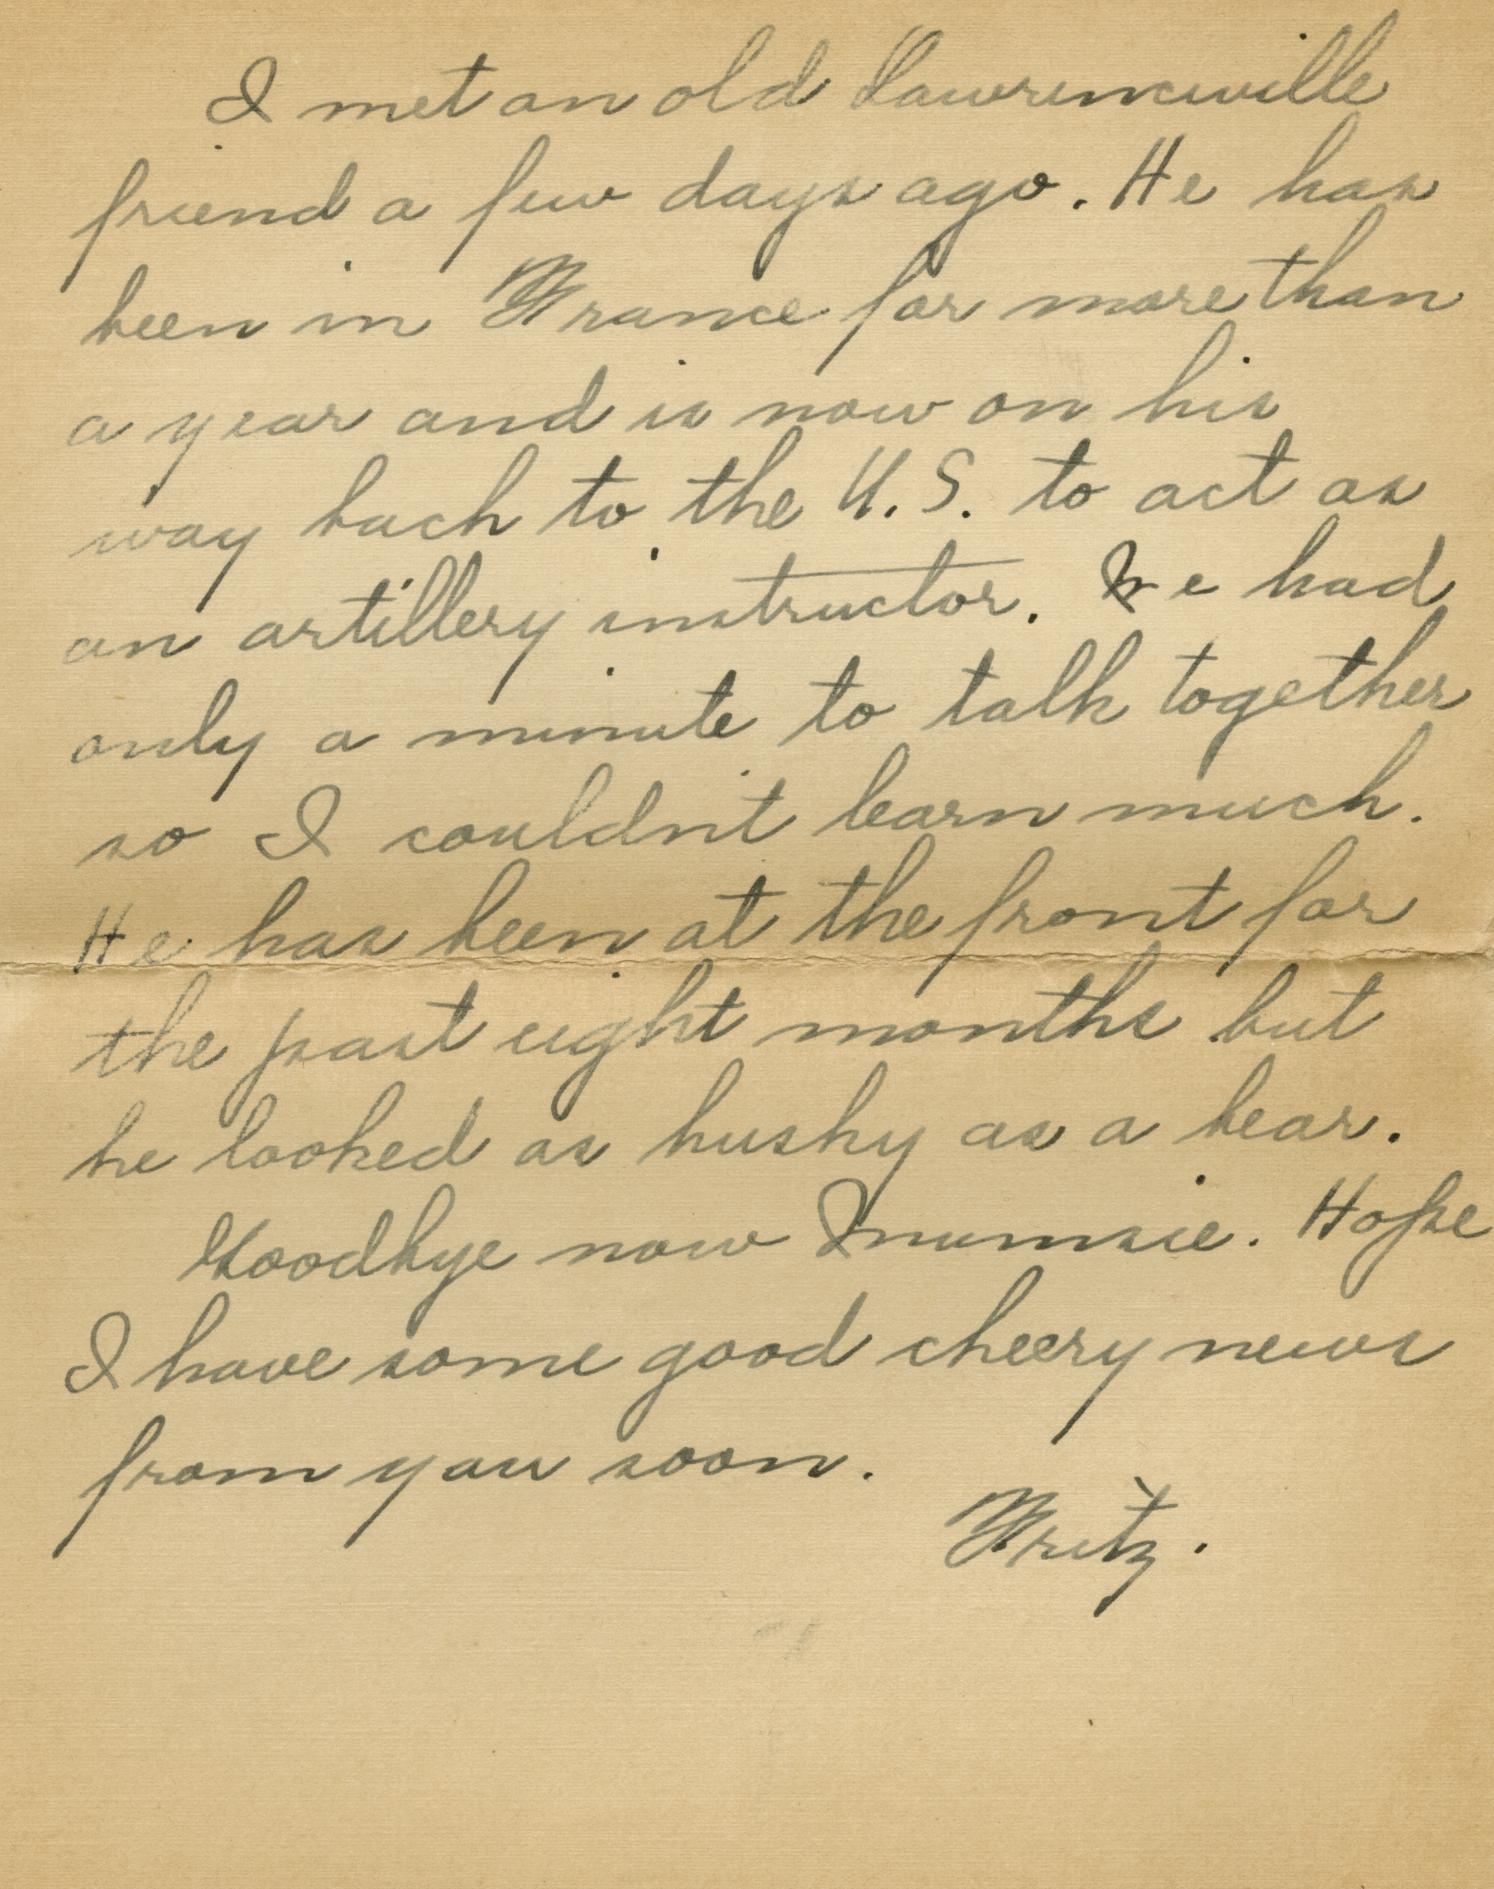 I met an old Lawrenceville
friend a few days ago. He has
been in France for more than
a year and is now on his
way back to the U.S. to act as
an artillery instructor. We had
only a minute to talk together
so I couldn't learn much.
He has been at the front for
the past eight months but
he looked as husky as a bear.
Goodbye now Mumsie. Hope
I have some good cheery news
from you soon.
Fritz.